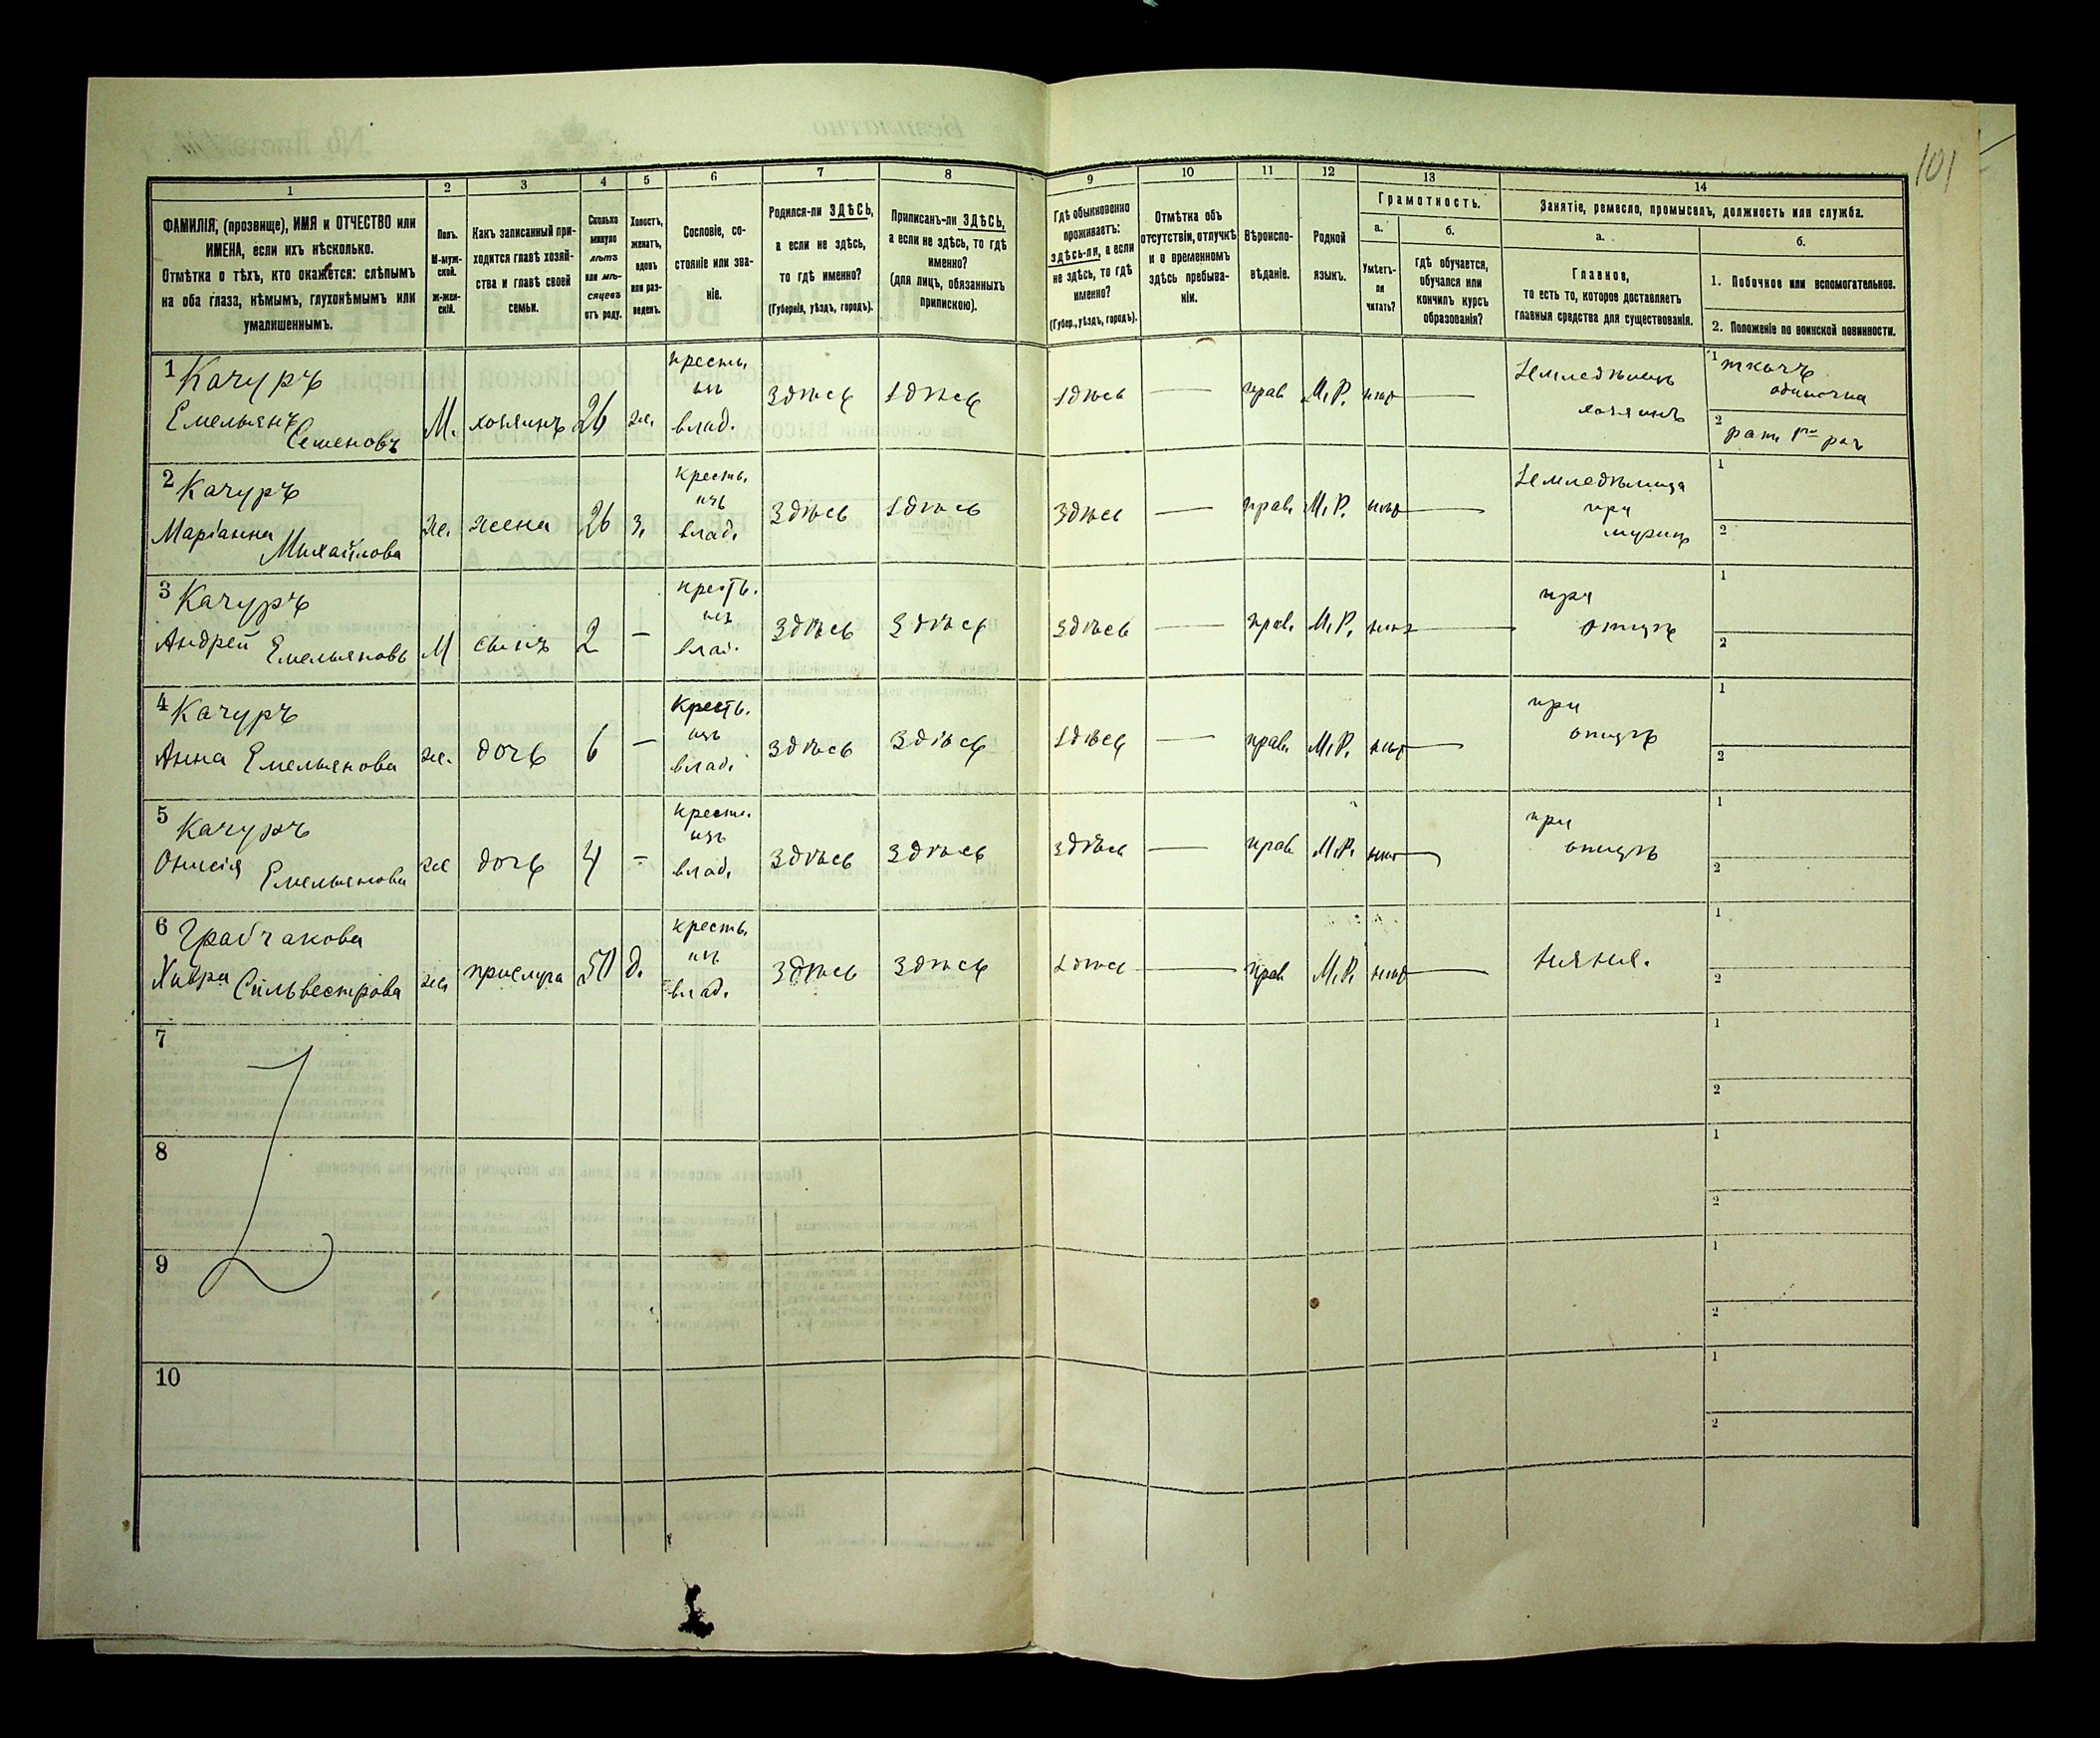 101
1 2 3 4 5 6 7 8 9 10 11 12 13 14
ФАМИЛІЯ, (прозвище), ИМЯ и ОТЧЕСТВО или
ИМЕНА, если ихъ нѣсколько.
Отмѣтка о тѣхъ, кто окажется: слѣпымъ
на оба глаза, нѣмымъ, глухонѣмымъ или
умалишеннымъ.
Полъ.
М-муж-
ской.
ж-жен-
скій.
Какъ записанный при-
ходится главѣ хозяй-
ства и главѣ своей
семьи.
Сколько
минуло
лѣтъ
или мѣ-
сяцевъ
отъ роду.
Холостъ,
женатъ,
вдовъ
или раз-
веденъ.
Сословіе, со-
стояніе или зва-
ніе.
Родился-ли ЗДѢСЬ,
а если не здѣсь,
то гдѣ именно?
(Губернія, уѣздъ, городъ).
Приписанъ-ли ЗДѢСЬ,
а если не здѣсь, то гдѣ
именно?
(для лицъ, обязанныхъ
припискою).
Гдѣ обыкновенно
проживаетъ:
здѣсь-ли, а если
не здѣсь, то гдѣ
именно?
(Губер., уѣздъ, городъ).
Отмѣтка объ
отсутствіи, отлучкѣ
и о временномъ
здѣсь пребыва-
ніи.
Вѣроиспо-
вѣданіе.
Родной
языкъ.
Грамотность.
а.
Умѣетъ-
ли
читать?
б.
Гдѣ обучается,
обучался или
кончилъ курсъ
образованія?
Занятіе, ремесло, промыселъ, должность или служба.
а.
Главное,
то есть то, которое доставляетъ
главныя средства для существованія.
б.
1. Побочное или вспомогательное.
2. Положеніе по воинской повинности.
1 Качуръ
Емельянъ
Семеновъ
М. хозяинъ 26 же.
кресть.
изъ
влад.
здѣсь здѣсь здѣсь — прав М.Р. нѣт —
Земледѣлецъ
хозяинъ
1 ткачъ
одиночка
2 рат. 1го раз
2 Качуръ
Маріанна
Михайлова
же. жена 26 з.
кресть.
изъ
влад.
здѣсь здѣсь здѣсь — прав. М.Р. нѣт —
Земледѣлица
при
мужѣ
1
2
3 Качуръ
Андрей Емельяновъ
М сынъ 2 —
кресть.
изъ
влад.
здѣсь здѣсь здѣсь — прав. М.Р. нѣт —
при
отцѣ
1
2
4 Качуръ
Анна Емельянова
же. дочь 6 —
кресть.
изъ
влад.
здѣсь здѣсь здѣсь — прав. М.Р. нѣт —
при
отцѣ
1
2
5 Качуръ
Онисія Емельянова
же дочь 4 —
кресть.
изъ
влад.
здѣсь здѣсь здѣсь — прав М.Р. нѣт —
при
отцѣ
1
2
6
Сильвестрова
же прислуга д.
кресть.
изъ
влад.
здѣсь здѣсь здѣсь — прав М.Р. нѣт —
няня.
1
2
7
1
2
8
1
2
9
1
2
10
1
2